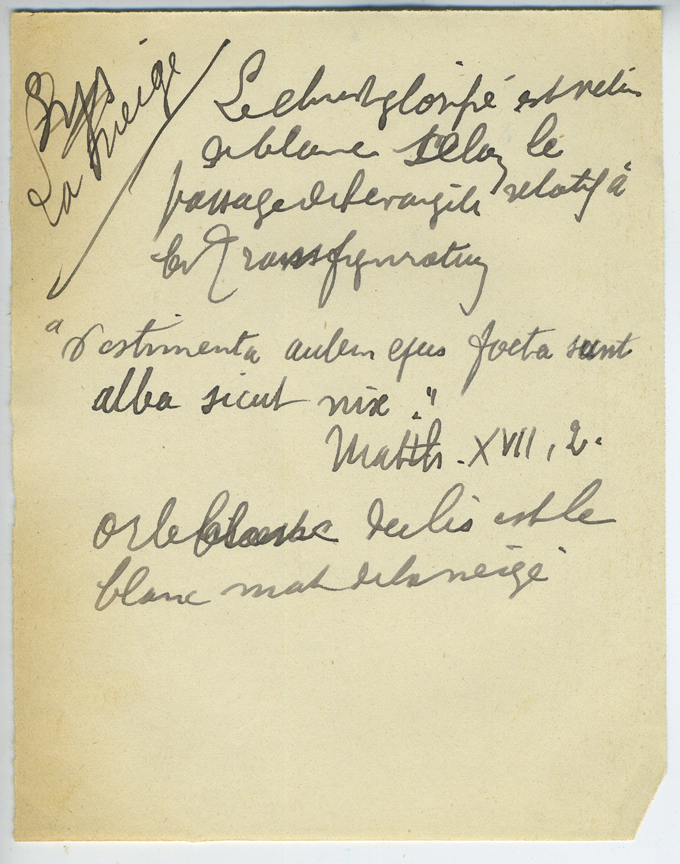 Lys
La neige
Le christ glorifié est vetu
de blanc selon le
passage de l'evangile relatif à
la Transfiguration
"Vestimenta autem ejus facta sunt
alba sicut nix."
Matth. XVII, 2.
or le blanc du lis est le
blanc mat de la neige